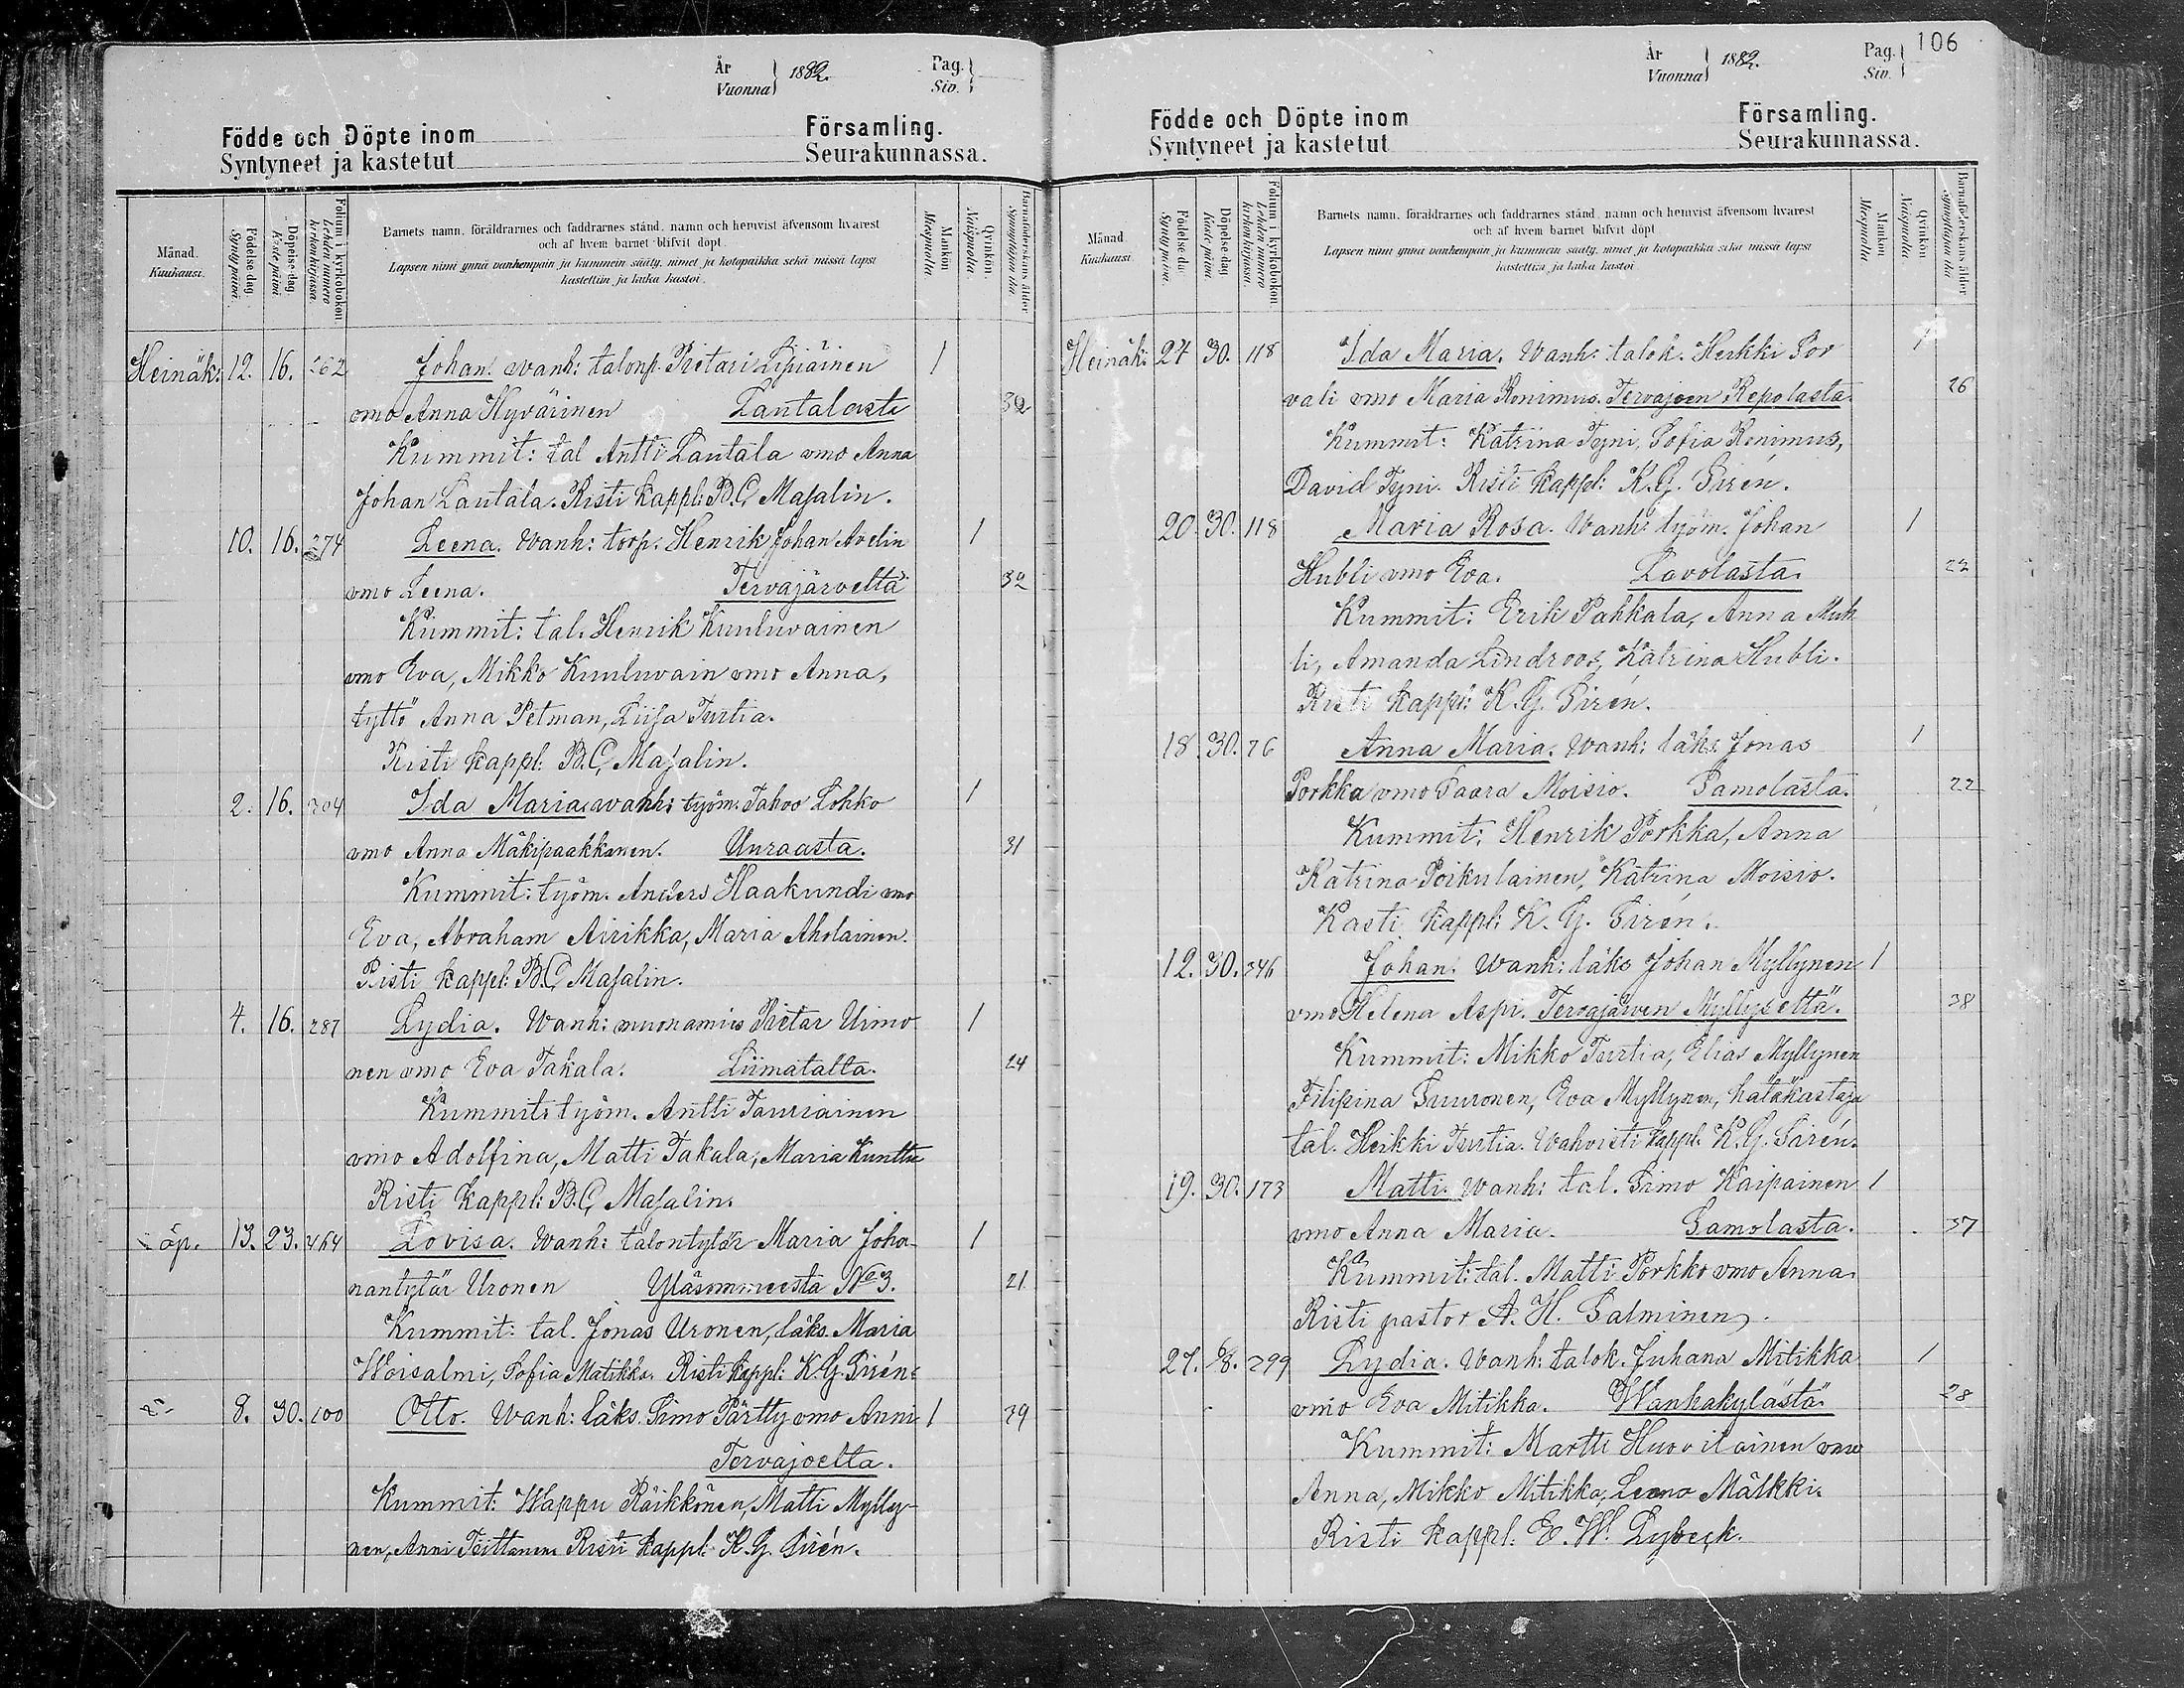 År
Vuonna
1882.
Pag.
Siv.
Födde och Döpte inom
Församling.
Syntyneet ja kastetut
Seurakunnassa.
Månad.
Kuukausi.
Födelse-dag.
Syntypäivä.
Döpelse-dag.
Kastepäivä.
Folium i kyrkoboken.
Lehden numero kirkonkirjassa.
Barnets namn, föräldrarnes och faddrarnes stånd, namn och hemvist äfvensom hvarest
och af hvem barnet blifvit döpt.
Lapsen nimi ynnä vanhempain ja kummein sääty, nimet ja kotopaikka sekä missä lapsi
kastettiin ja kuka kastoi.
Mankön.
Miespuolta.
Qvinkön.
Naispuolta.
Barnaföderskans ålder
Synnyttäjän ikä.
Heinäk: 12. 16. 262 Johan. Wanh: talonp. Pietari Lipiäinen 1
vmo Anna Hyvärinen Lautalasta 32
Kummit: tal Antti Lautala vmo Anna
Johan Lautala. Risti kappl: B.C. Masalin.
10. 16. 274 Leena. Wanh: torp. Henrik Johan Avelin 1
vmo Leena. Tervajärveltä 32
Kummit: tal. Henrik Kuuluvainen
vmo Eva, Mikko Kuuluvain vmo Anna,
tyttö Anna Petman, Liisa Turtia.
Risti kappl: B.C. Masalin.
2. 16. 304 Ida Maria. wanh: työm. Tahvo Lohko 1
vmo Anna Mäkipaakkanen. Uuraasta. 31
Kummit: työm. Anders Haakundi vmo
Eva, Abraham Airikka, Maria Aholainen.
Risti kappl: B.C. Masalin.
4. 16. 287 Lydia. Wanh: muonamies Pietar Uimo 1
nen vmo Eva Takala. Liimatalta. 24
Kummit: työm. Antti Tauriainen
vmo Adolfina, Matti Takala, Maria Kunttu
Risti kappl: B.C. Masalin.
äp. 13. 23. 464 Lovisa. Wanh: talontytär Maria Joha- 1
nantytär Uronen Yläsommeesta No 3. 21
Kummit: tal. Jonas Uronen, läks. Maria
Woisalmi, Sofia Matikka. Risti kappl: K.G. Sirén.
8. 30. 100 Otto. Wanh: läks. Simo Pärtty vmo Anni 1 39
Tervajoelta.
Kummit: Wappu Räikkönen, Matti Mylly-
nen, Anni Toittanen Risti kappl: K.G. Sirén.
106
År
Vuonna
1882.
Pag.
Siv.
Födde och Döpte inom
Församling.
Syntyneet ja kastetut
Seurakunnassa.
Månad.
Kuukausi.
Födelse-dag.
Syntypäivä.
Döpelse-dag.
Kastepäivä.
Folium i kyrkoboken.
Lehden numero kirkonkirjassa.
Barnets namn, föräldrarnes och faddrarnes stånd, namn och hemvist äfvensom hvarest
och af hvem barnet blifvit döpt
Lapsen nimi ynnä vanhempain ja kummein sääty, nimet ja kotopaikka sekä missä lapsi
kastettiin ja kuka kastoi
Mankön
Miespuolta
Qvinkön
Naispuolta
Barnaföderskans ålder
Synnyttäjän ikä
Heinäk: 24 30. 118 Ida Maria. Wanh: talok. Heikki Por 1
vali vmo Maria Ronimus. Tervajoen Repolasta. 26
Kummit: Katrina Tyni, Sofia Ronimus,
David Tyni. Risti kappl: K.G. Sirén.
20. 30. 118 Maria Rosa. Wanh: työm. Johan 1
Hubli vmo Eva. Lavolasta. 22
Kummit: Erik Pahkala, Anna Muh
li, Amanda Lindroos, Katrina Hubli.
Risti kappl: K.G. Sirén.
18. 30. 76 Anna Maria. Wanh: läks. Jonas 1
Porkka vmo Saara Moisio. Samolasta. 22
Kummit: Henrik Porkka, Anna
Katrina Poikulainen, Katrina Moisio.
Kasti kappl: K.G. Sirén.
12. 30. 246 Johan. Wanh: läks Johan Myllynen 1
vmo Helena Aspi. Tervajärven Myllyseltä. 38
Kummit: Mikko Turtia, Elias Myllynen
Filipina Suuronen, Eva Myllynen, hätäkastaja
tal. Heikki Turtia. Wahvisti kappl. K.G. Sirén.
19. 30. 173 Matti. Wanh: tal. Simo Kaipainen 1
vmo Anna Maria. Samolasta. 37
Kummit: tal. Matti Porkko vmo Anna.
Risti pastor A. H. Salminen.
27. 6/8. 299 Lydia. Wanh: talok. Juhana Mitikka 1
vmo Eva Mitikka. Wanhakylästä 28
Kummit: Martti Huovilainen vmo
Anna, Mikko Mitikka, Leena Mälkki.
Risti kappl: E. W. Lybeck.